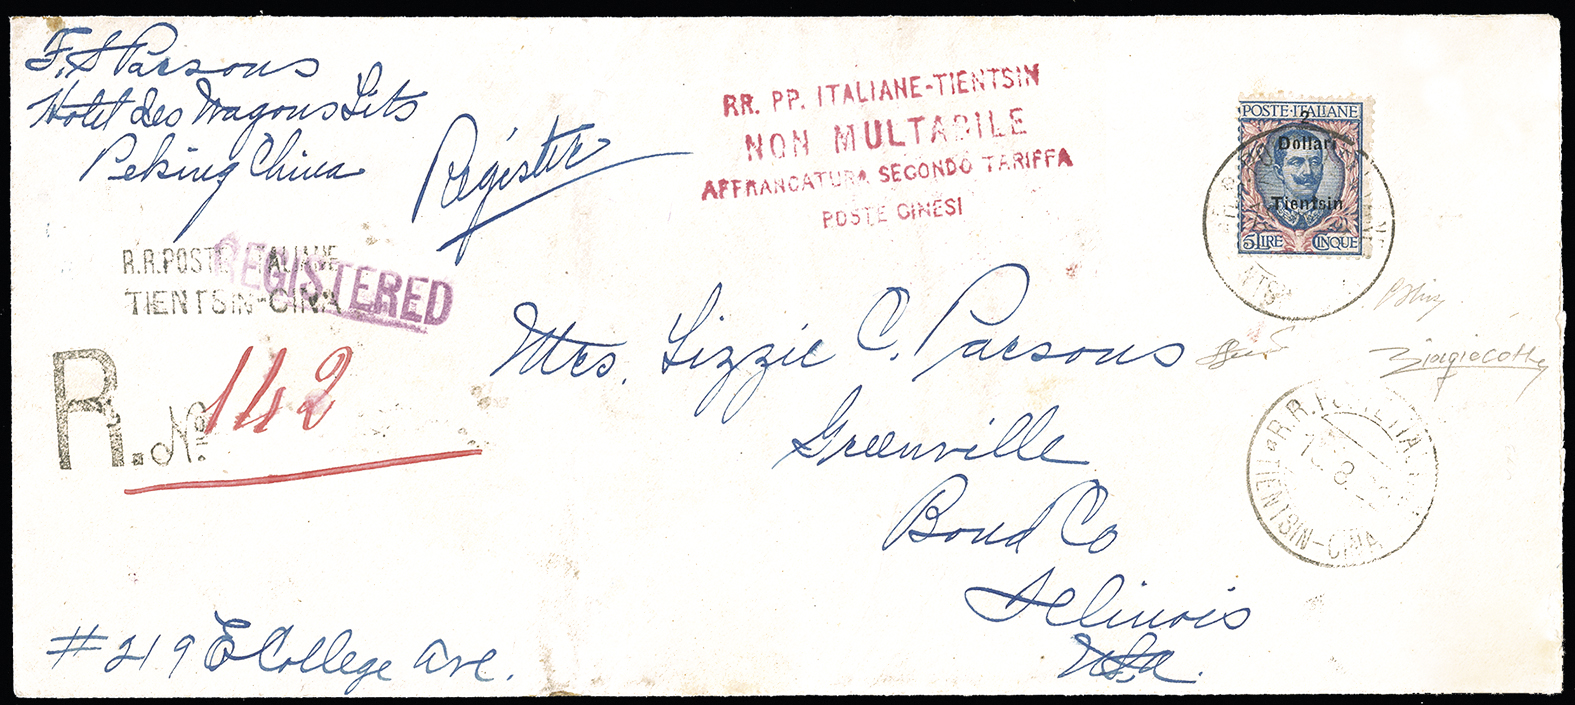 F. S Parsons
Hotel des Wagons Lits
Peking China
Register
RR. PP. ITALIANE-TIENTSIN
NON MULTABILE
AFFRANCATURA SECONDO TARIFFA
POSTE CINESI
POSTE·ITALIANE
2
Dollari
Tientsin
5 LIRE CINQUE
R.R.POSTE ITALIANE
TIENTSIN-CINA
REGISTERED
R. No. 142
Mrs. Lizzie C. Parsons
Greenville
Bond Co
Illinois
U.S.A.
R.R. POSTE ITALIANE
TIENTSIN-CINA
# 219 E College Ave.